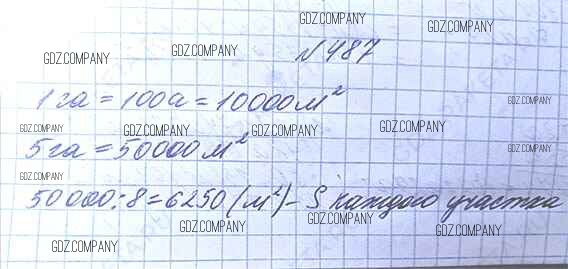 GDZ.COMPANY GDZ.COMPANY
GDZ.COMPANY GDZ.COMPANY №487
1 га = 100а = 10000 м²
GDZ.COMPANY
GDZ.COMPANY GDZ.COMPANY GDZ.COMPANY GDZ.COMPANY
5 га = 50000 м²
GDZ.COMPANY
GDZ.COMPANY
50000:8=6250 (м²) – S каждого участка
GDZ.COMPANY GDZ.COMPANY GDZ.COMPANY
GDZ.COMPANY